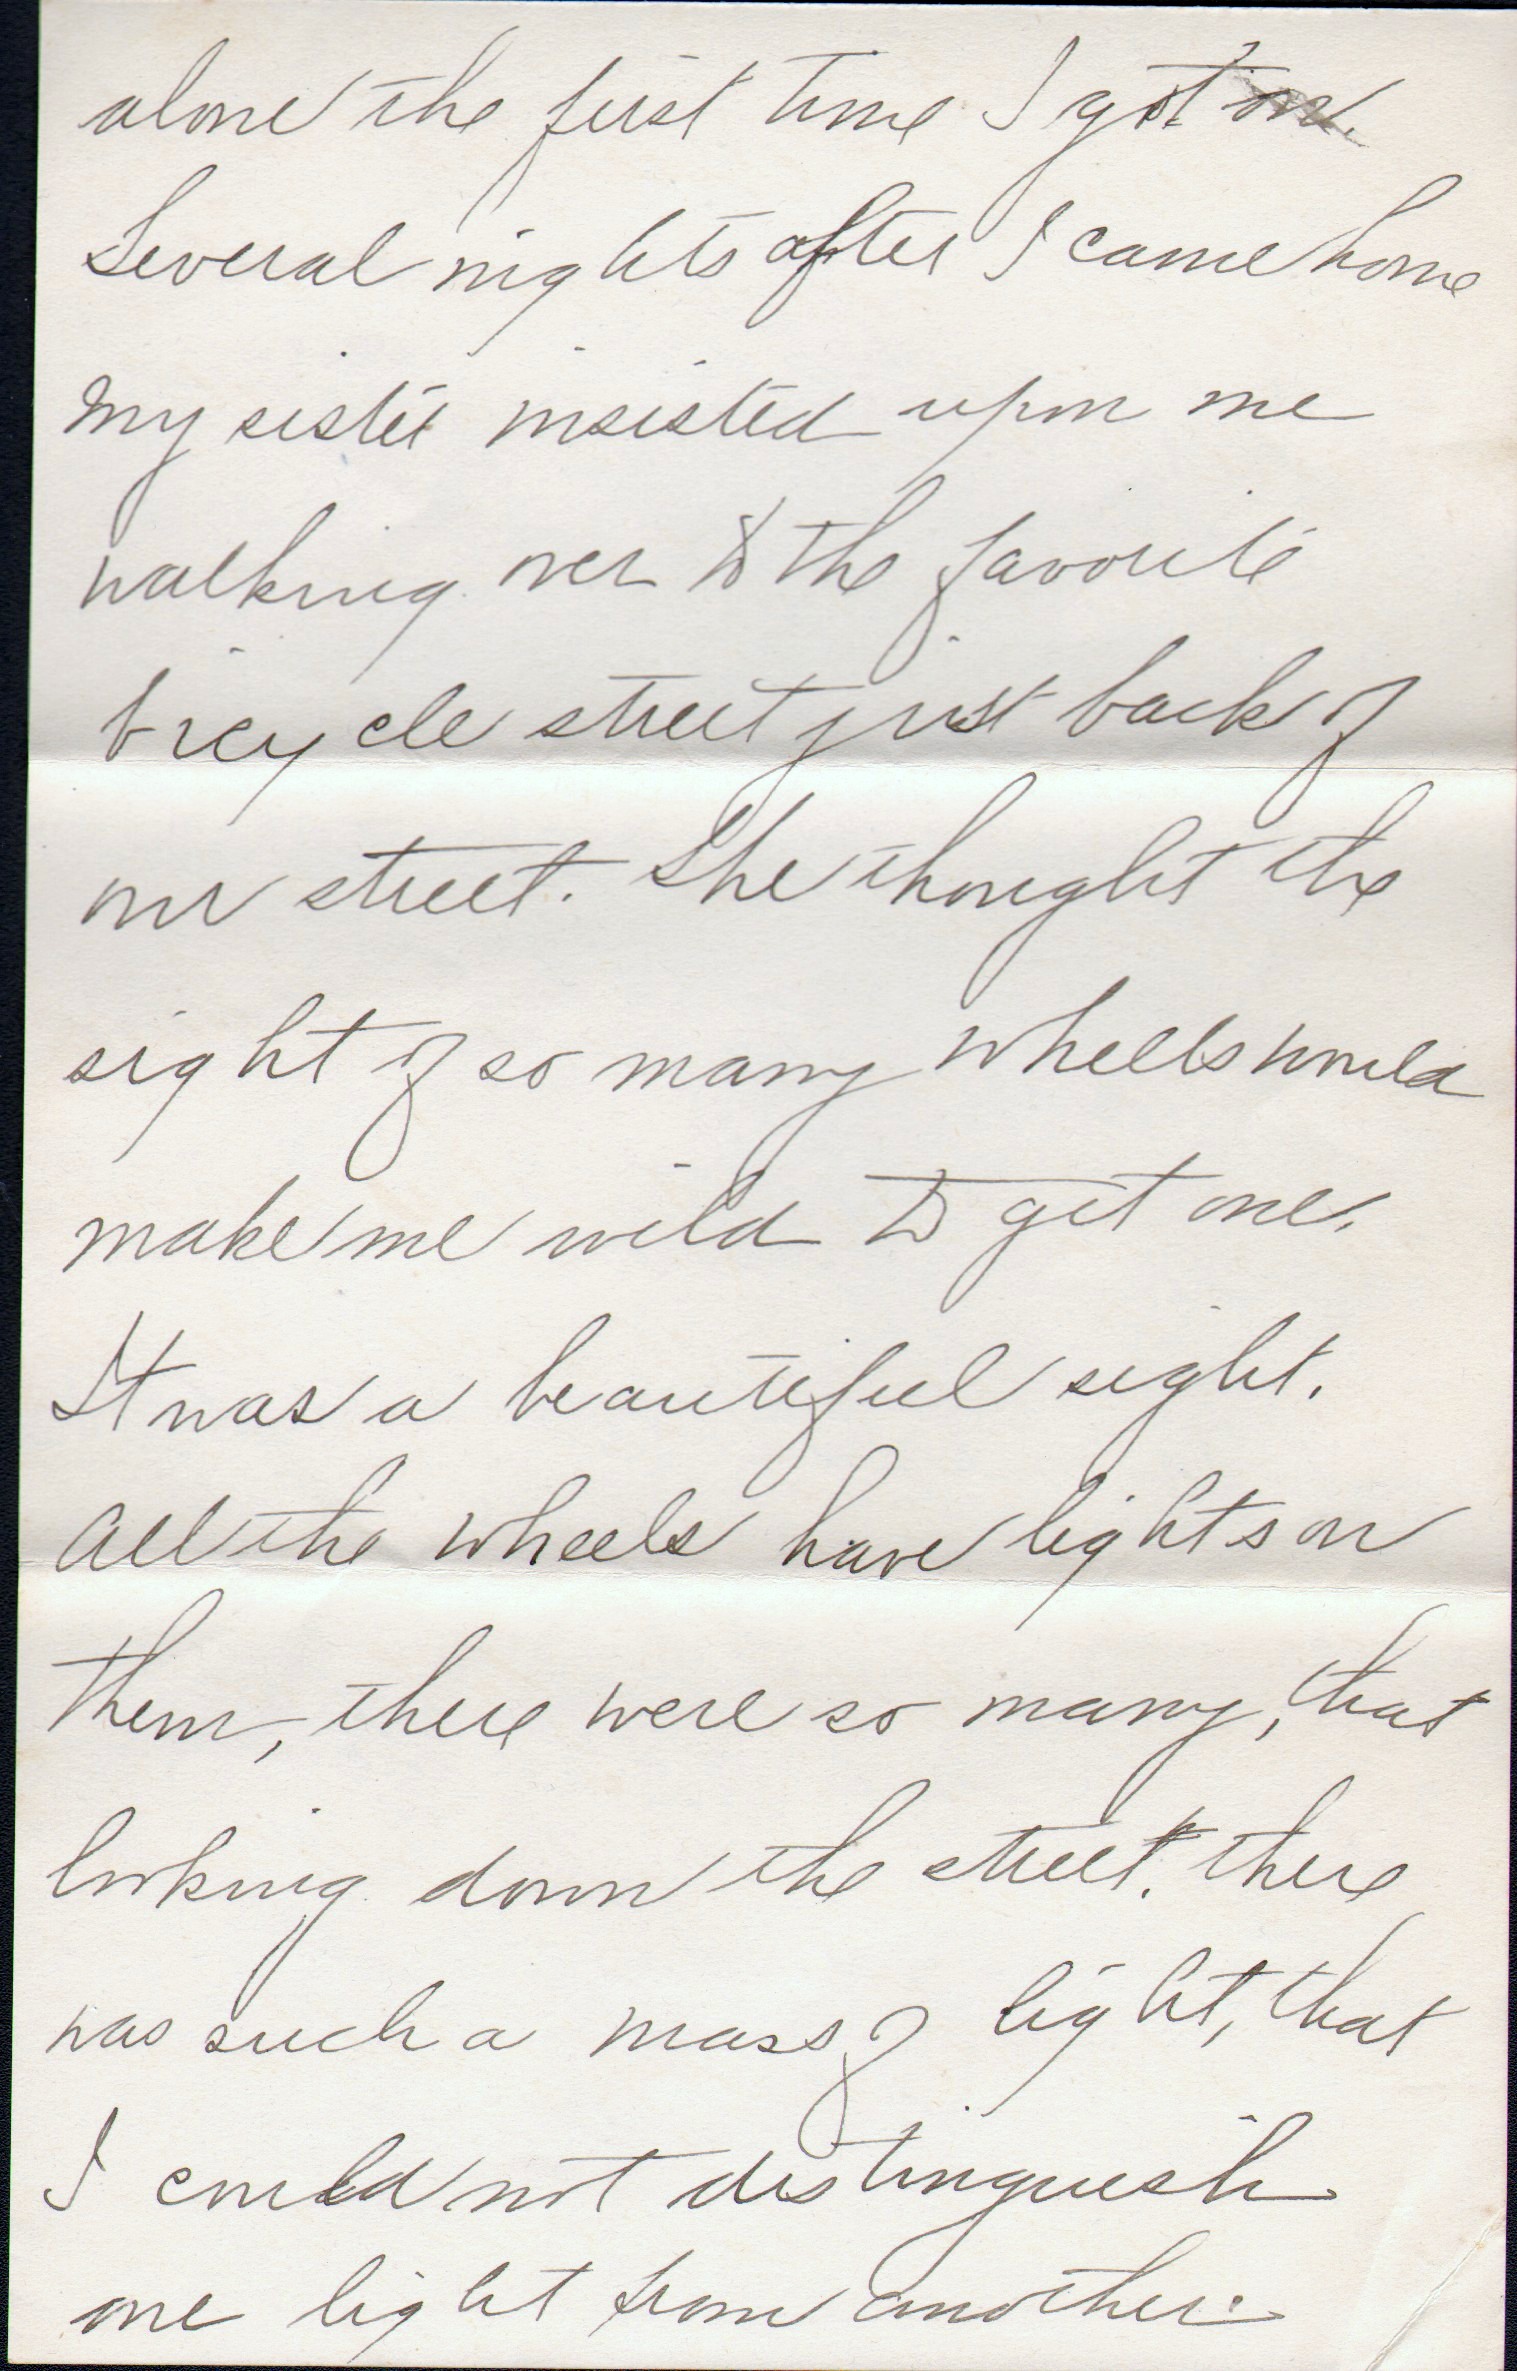 alone the first time I got on.
Several nights after I came home
my sister insisted upon me
walking over to the favorite
bicycle street just back of
our street. She thought the
sight of so many wheels would
make me wild to get one.
It was a beautiful sight.
All the wheels have lights on
them, there were so many, that
looking down the street, there
was such a mass of light, that
I could not distinguish
one light from another.